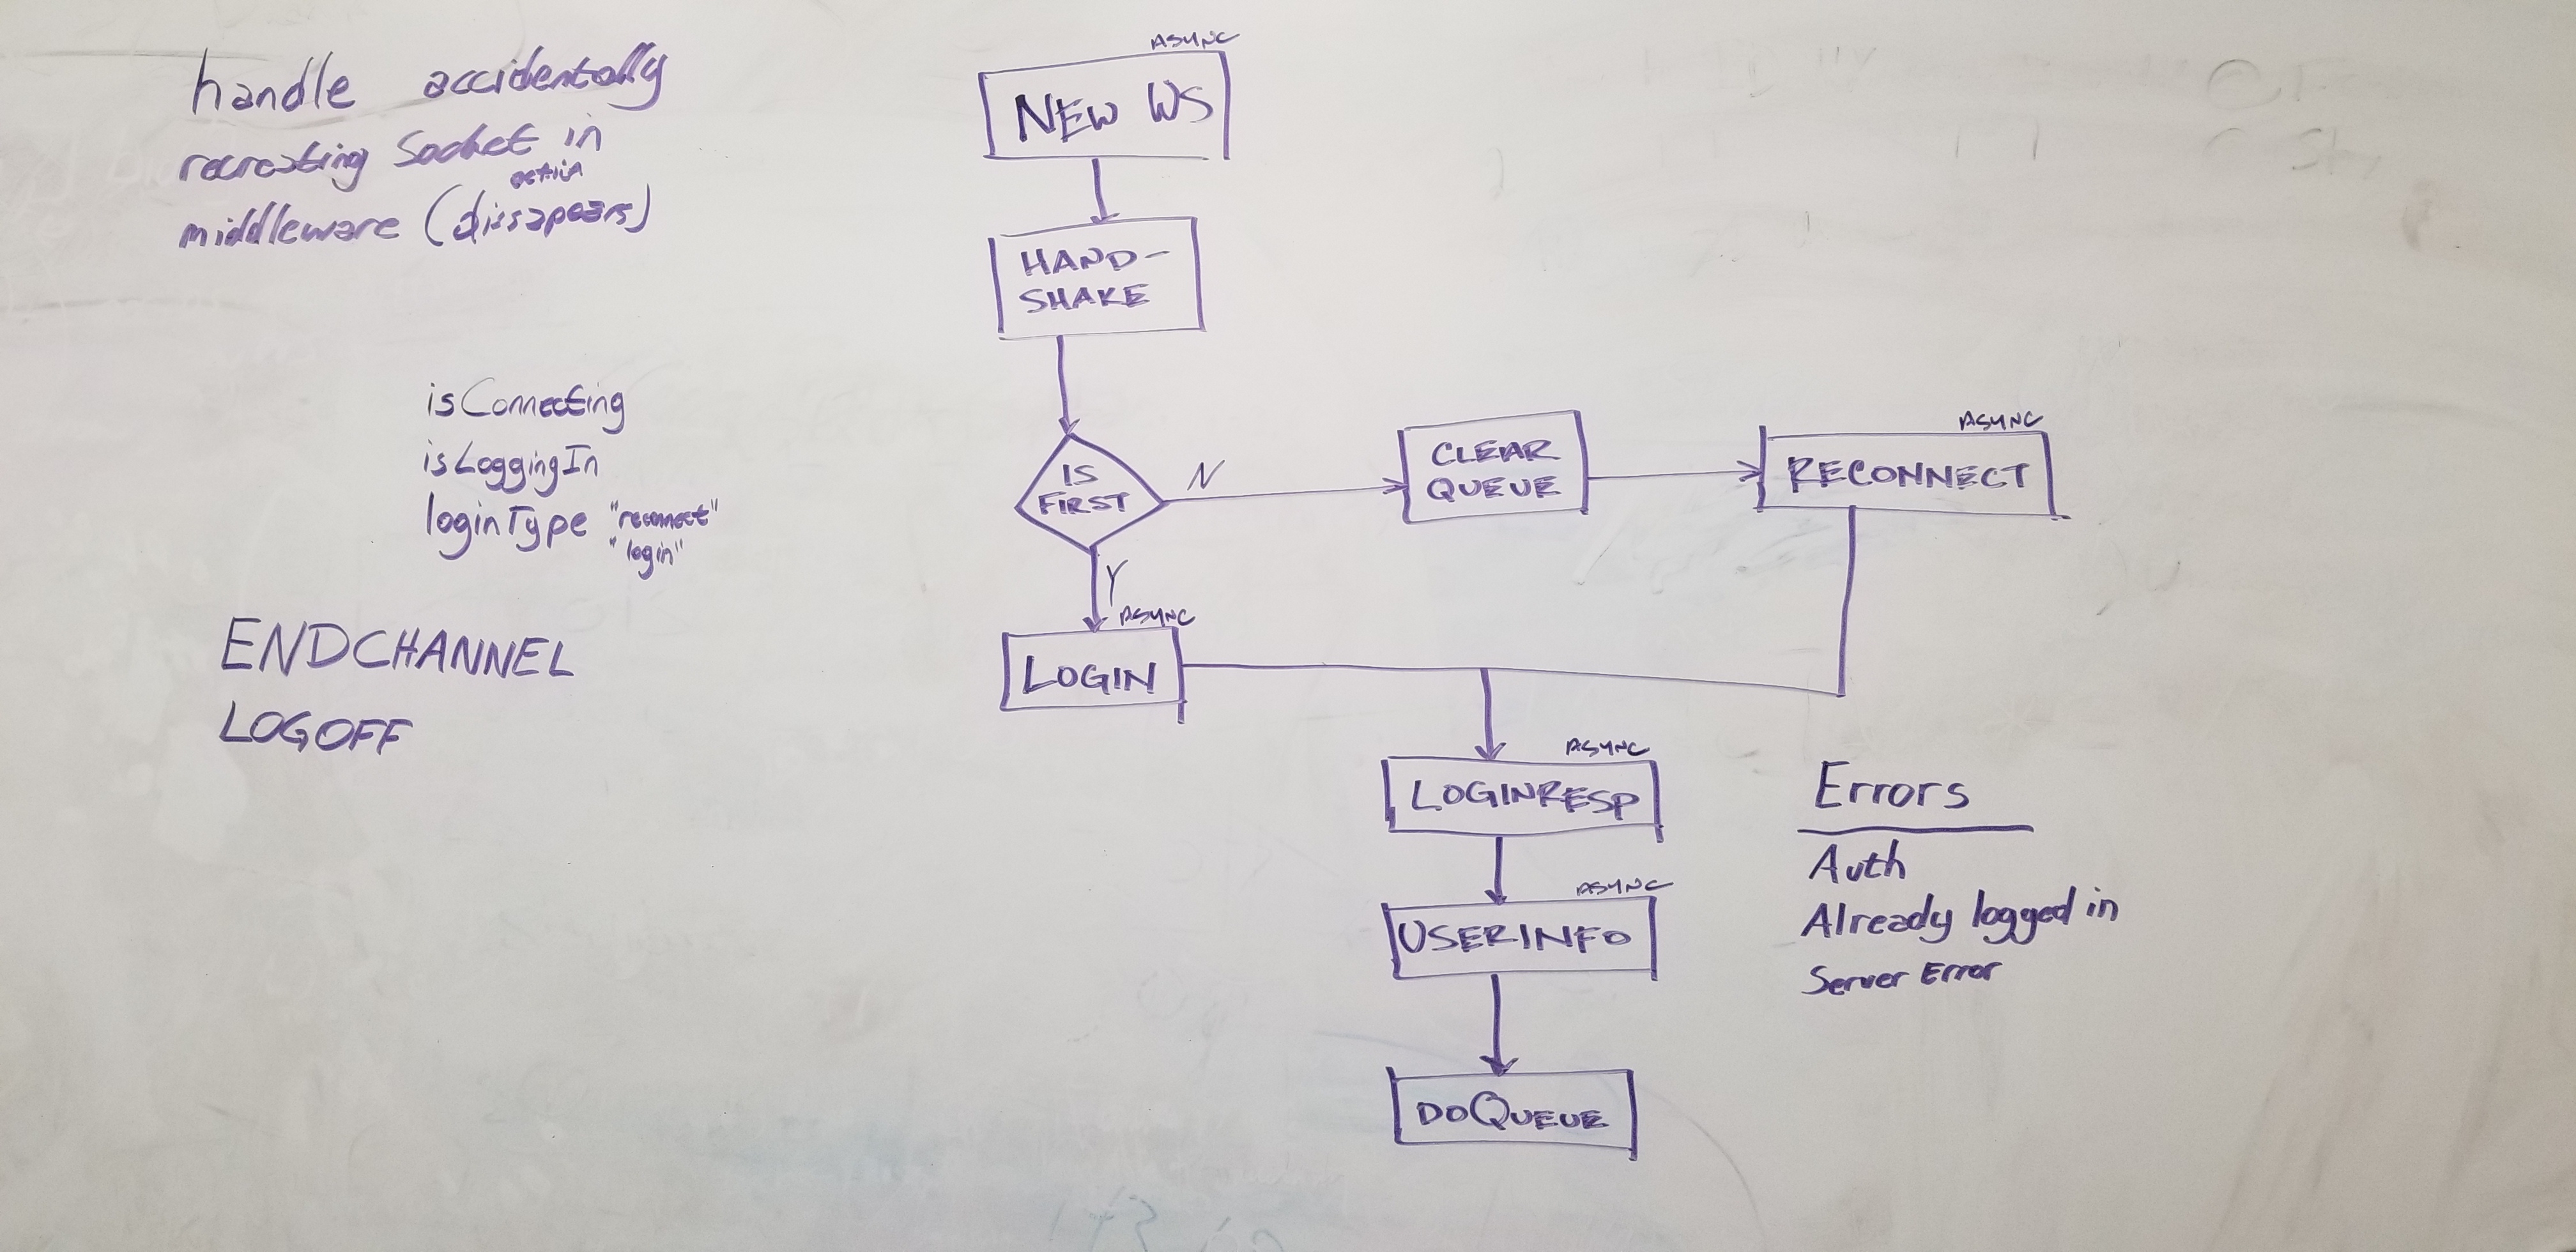 handle accidentally
recreating Socket in
action
middleware (dissapears)
isConnecting
isLoggingIn
loginType "reconnect"
"login"
ENDCHANNEL
LOGOFF
ASYNC
NEW WS
HAND-
SHAKE
IS
FIRST
N
Y
CLEAR
QUEUE
ASYNC
RECONNECT
ASYNC
LOGIN
ASYNC
LOGINRESP
ASYNC
USERINFO
DOQUEUE
Errors
Auth
Already logged in
Server Error